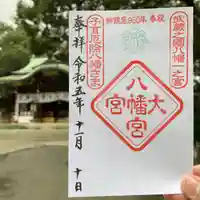 武蔵之國八幡一之宮
御鎮座960年 奉祝
子育厄除八幡さま
大宮八幡宮
奉拝 令和五年 十一月 十日